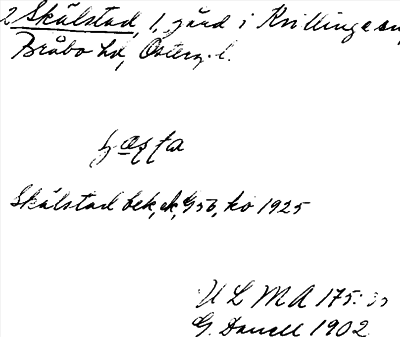 2 Skälstad, 1, gård i Kvillinge sn,
Bråbo hd, Österg. l.
Skälstad bek, ek, G56, ko 1925
ULMA 175:
G. Danell 1902